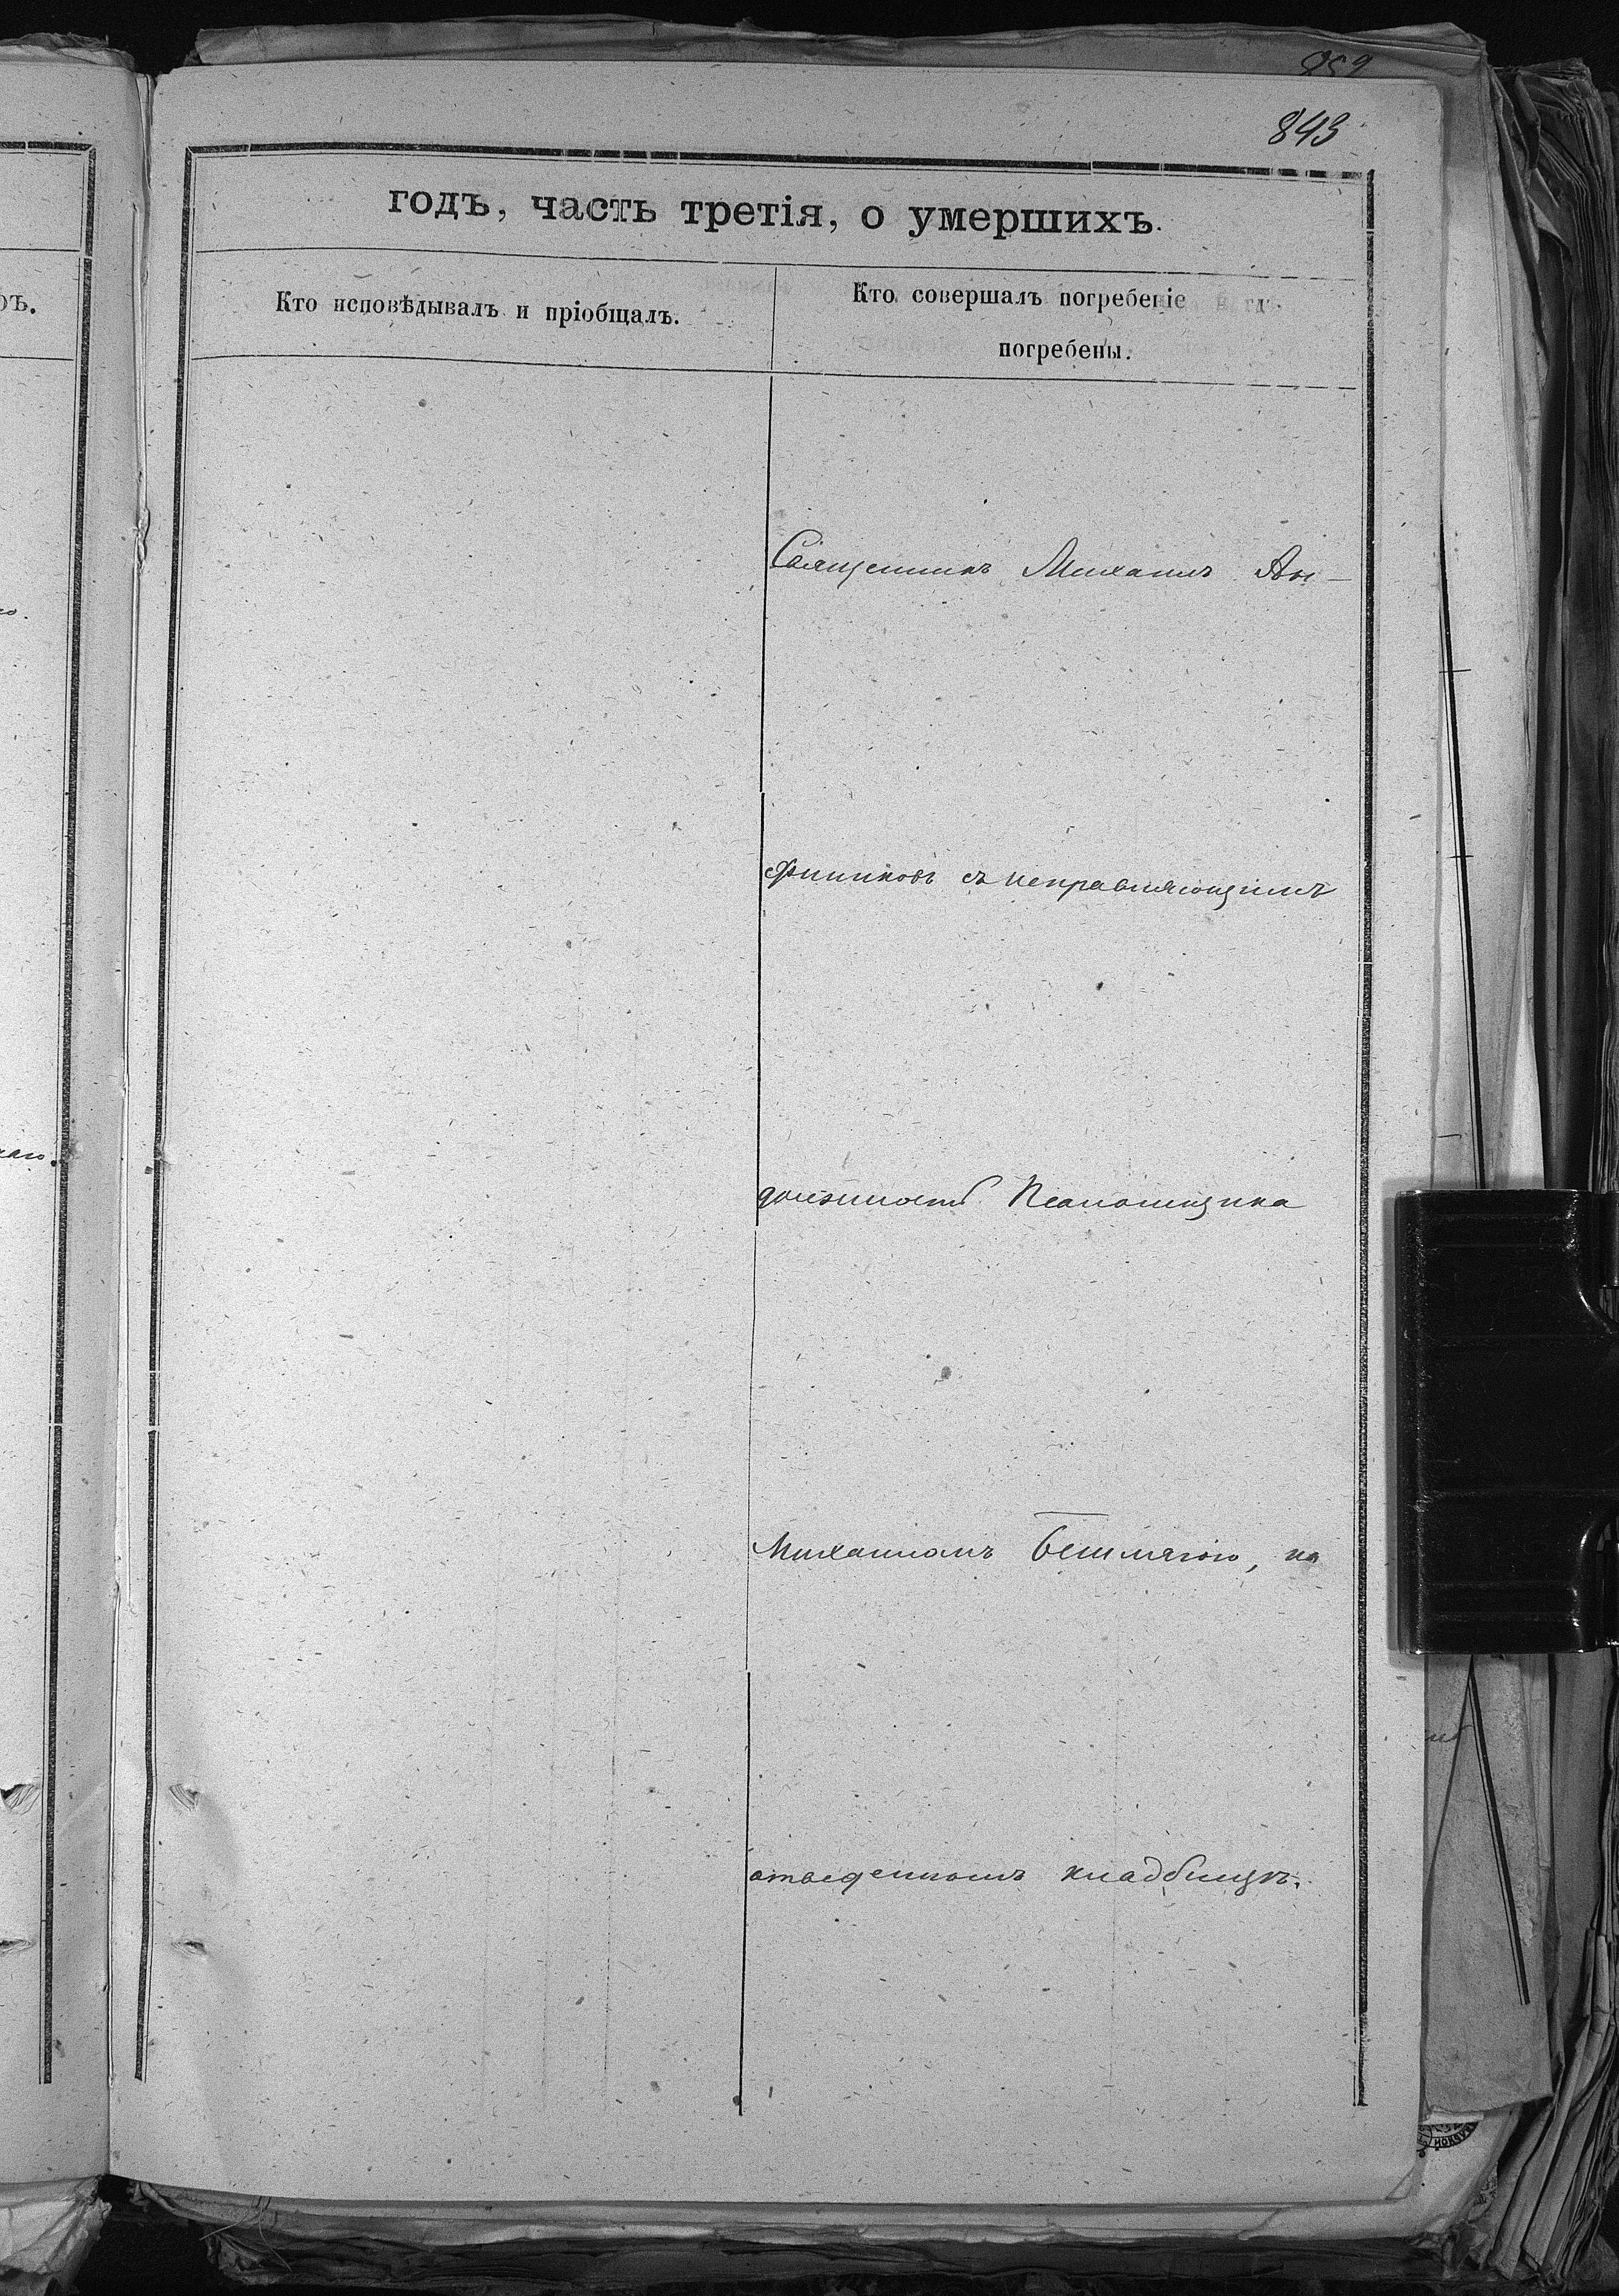 843
годъ, часть третія, о умершихъ.
Кто исповѣдывалъ и пріобщалъ.
Кто совершалъ погребеніе и гдѣ
погребены.
Священникъ Михаилъ
съ исправляющимъ
должность Псаломщика
Михаиломъ на
отведенномъ кладбищѣ.